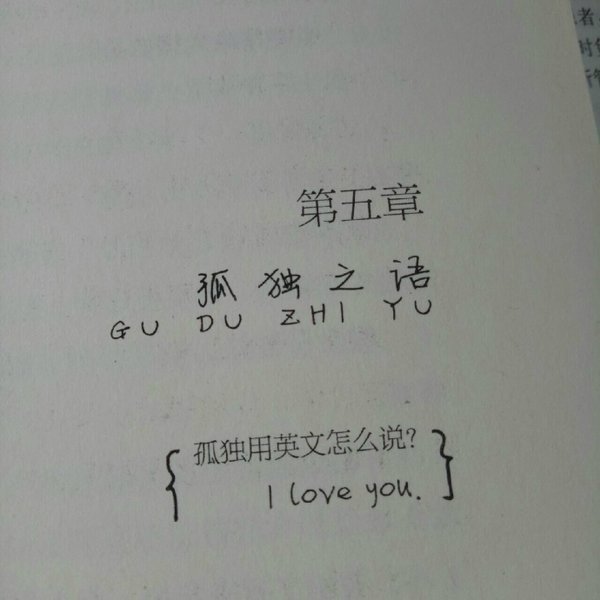 第五章
孤独之语
GU DU ZHI YU
孤独用英文怎么说?
I love you.
者
时